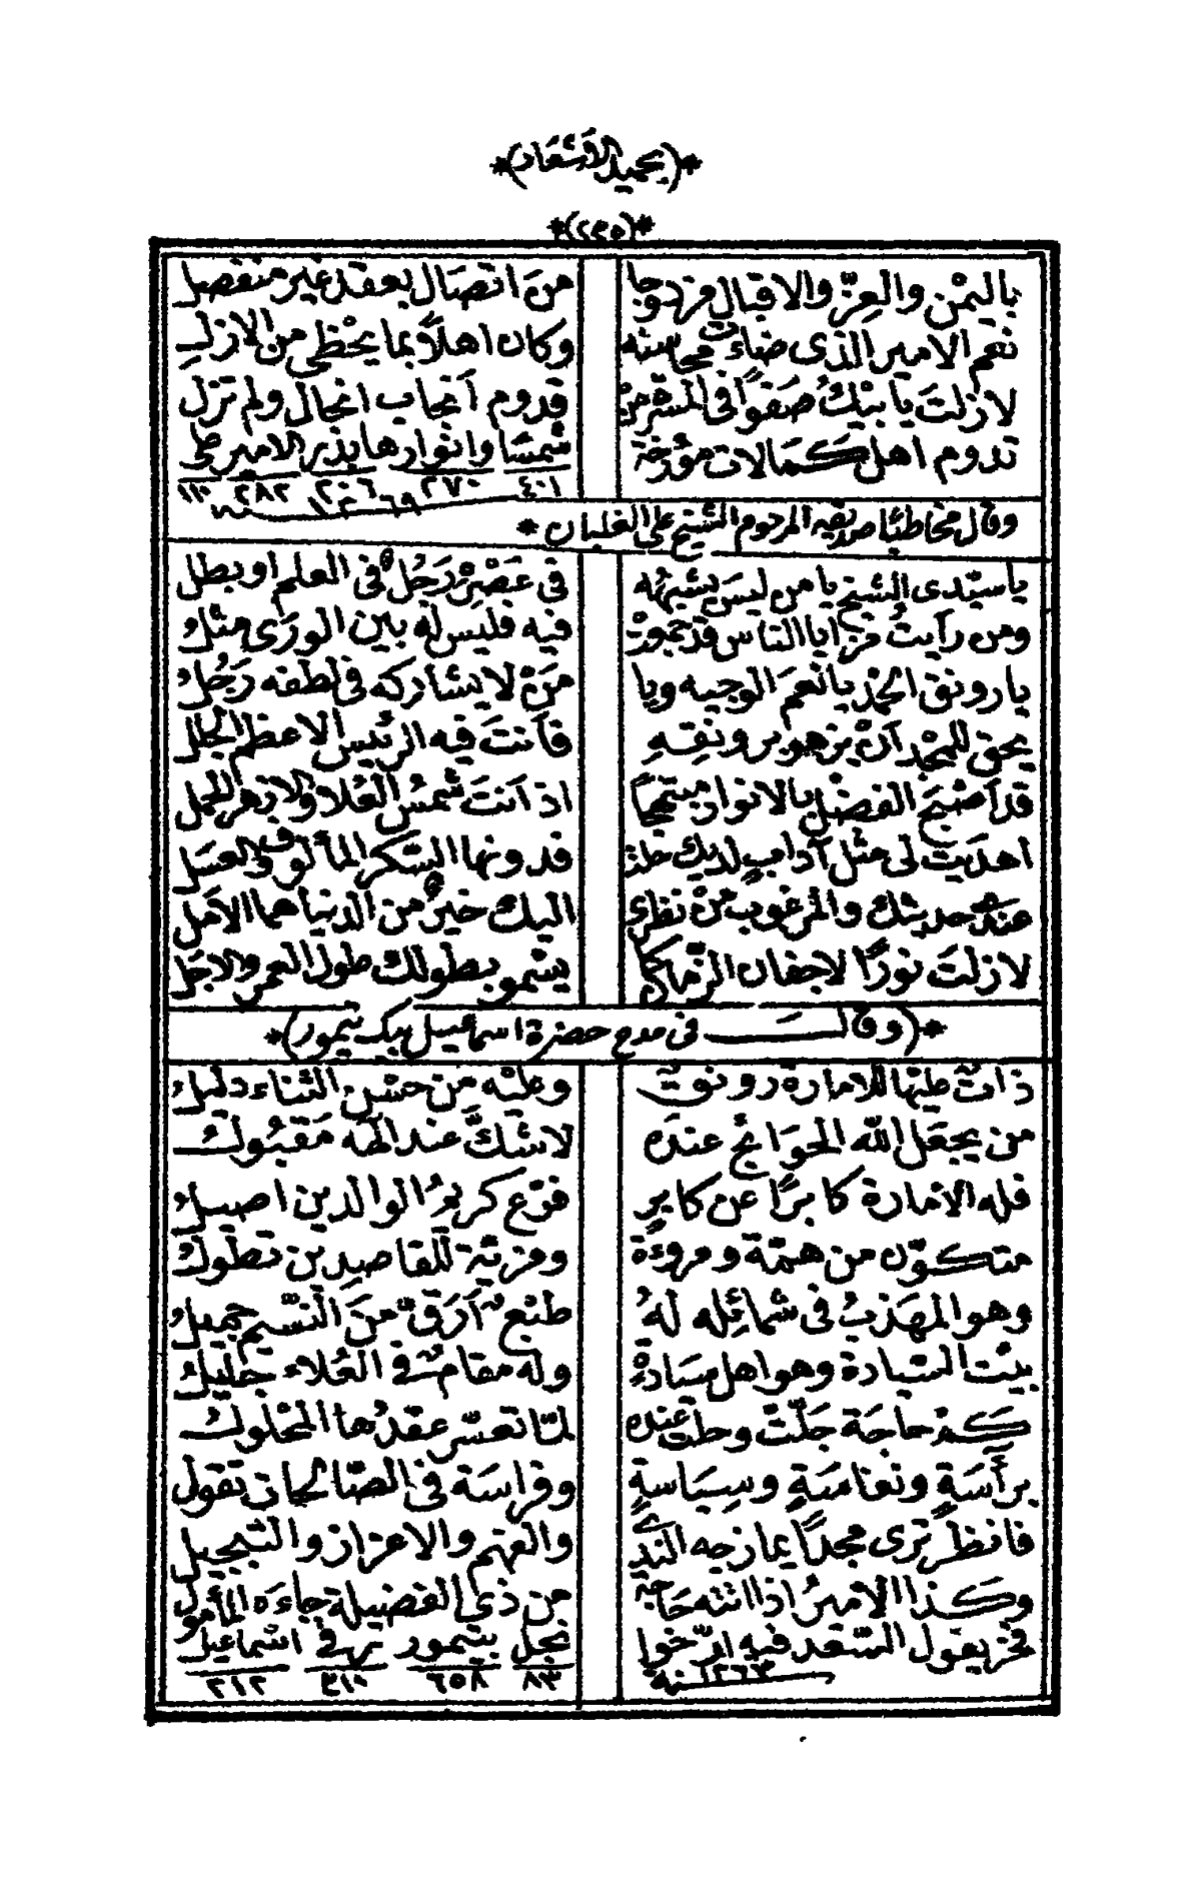 *(بحميد الاشعار)*
*(٢٣٥)*
باليمن والعِزّ والاقبال مزدوجا من اتصال بعقد غير منفصل
نعم الامير الذى ضاءت محاسنه وكان اهلًا بما يحظى من الازل
لازلتَ يا بيْكُ صفوًا فى المسرّة من قدوم انجاب انجال ولم تزل
تدوم اهل كمالات مؤرخة شمسًا وانوارها بذر الامير على
٤٠١ ٢٧٠ ٢٠٦ ٢٨٢ ١١٠
سنة ١٢٦٩
وقال مخاطبًا صديقه المرحوم الشيخ على الغلبان *
ياسيّدى الشيخ يا من ليس يشبهُه فى عَصْرِه رَجُلٌ فى العلم او بطل
ومن رأيتُ مزايا الناس قد جمعت فيه فليس له بين الورى مثلُ
يا رونق الحمد يا نعمَ الوجيه ويا مَنْ لا يشاركه فى لطفه رَجُلُ
يحق للمجد أنْ يزهو برونقِهِ فأنتَ فيه الرئيس الاعظم الجلل
قد أصبحَ الفضلُ بالانوار مبتهجًا اذ أنتَ شمسُ العُلا والازهر الحمل
اهديت لى مثل آداب لديك حلت قد دونها السكر المألوف والعسل
عندى حديثك والمرغوب مِنْ نظرى اليك خيرٌ من الدنيا هما الامل
لازلتَ نورًا لاجفان الزمان كما يسْمو بطولك طول العمر والاجل
*(وقالَ فى مدح حضرة اسماعيل بيك تيمور)*
ذاتٌ عليها للامارة رونقٌ وعليْه من حسْنِ الثناء دليلُ
من يجعَل اللّه الحوَائج عندَه لاشكَّ عند الهه مَقبُولُ
فله الامارة كابرًا عن كابرٍ فرْع كريمُ الوالدين اصيلُ
متكوّن من همّة ومروءة ومزيّة للقاصدين تطولُ
وهو المهَذبُ فى شمائِله لهُ طبْعٌ أرَقّ منَ النّسيم جميلُ
بيْت السّيادة وهو اهل سيَادةْ وله مقامٌ فى العُلاء جليلُ
كم حاجَة جَلّتْ وحلت عنده لمّا تعسّر عقدُها المحْلولُ
برآسَةٍ ونعامَةٍ وسِيَاسةٍ وفراسَة فى الصّالحات تقول
فانظر ترى مجدًا يمازجه الندى والفهم والاعزاز والتبجيل
وكذا الاميرُ اذا اتته حَاجة من ذى الفضيلة جاءَه المأمول
فخر يعول السّعد فيه ارّخوا نجل بتيمور بهى اسماعيل
٨٣ ٦٥٨ ٣١٠ ٢١٢
سنة ١٢٦٣